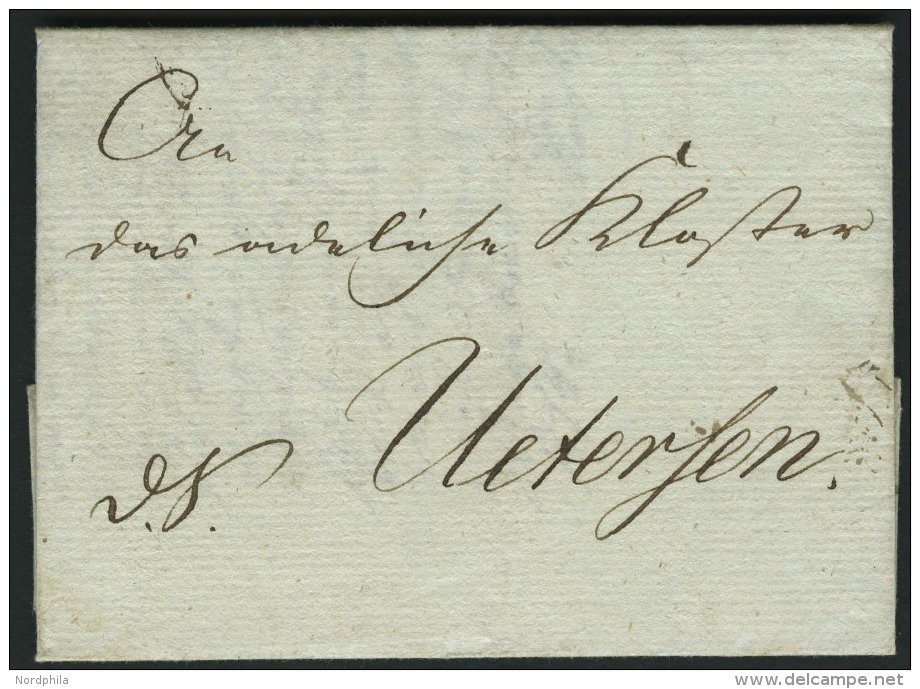 An
das adeliche Kloster
Uetersen.
d. S.
Nordphila
www.delcampe.net